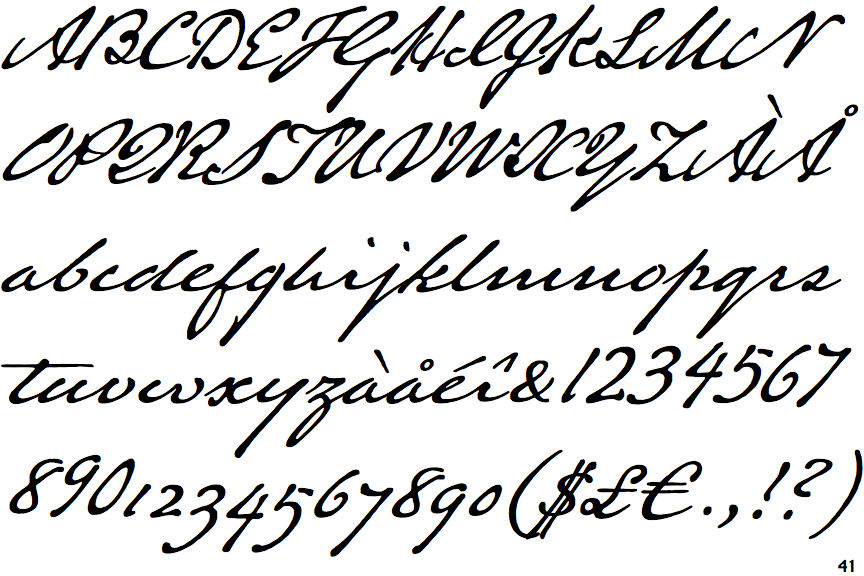 ABCDEFGHIJKLMN
OPQRSTUVWXYZÀÅ
abcdefghijklmnopqrs
tuvwxyzàåéî&1234567
8901234567890($£€.,!?)
41